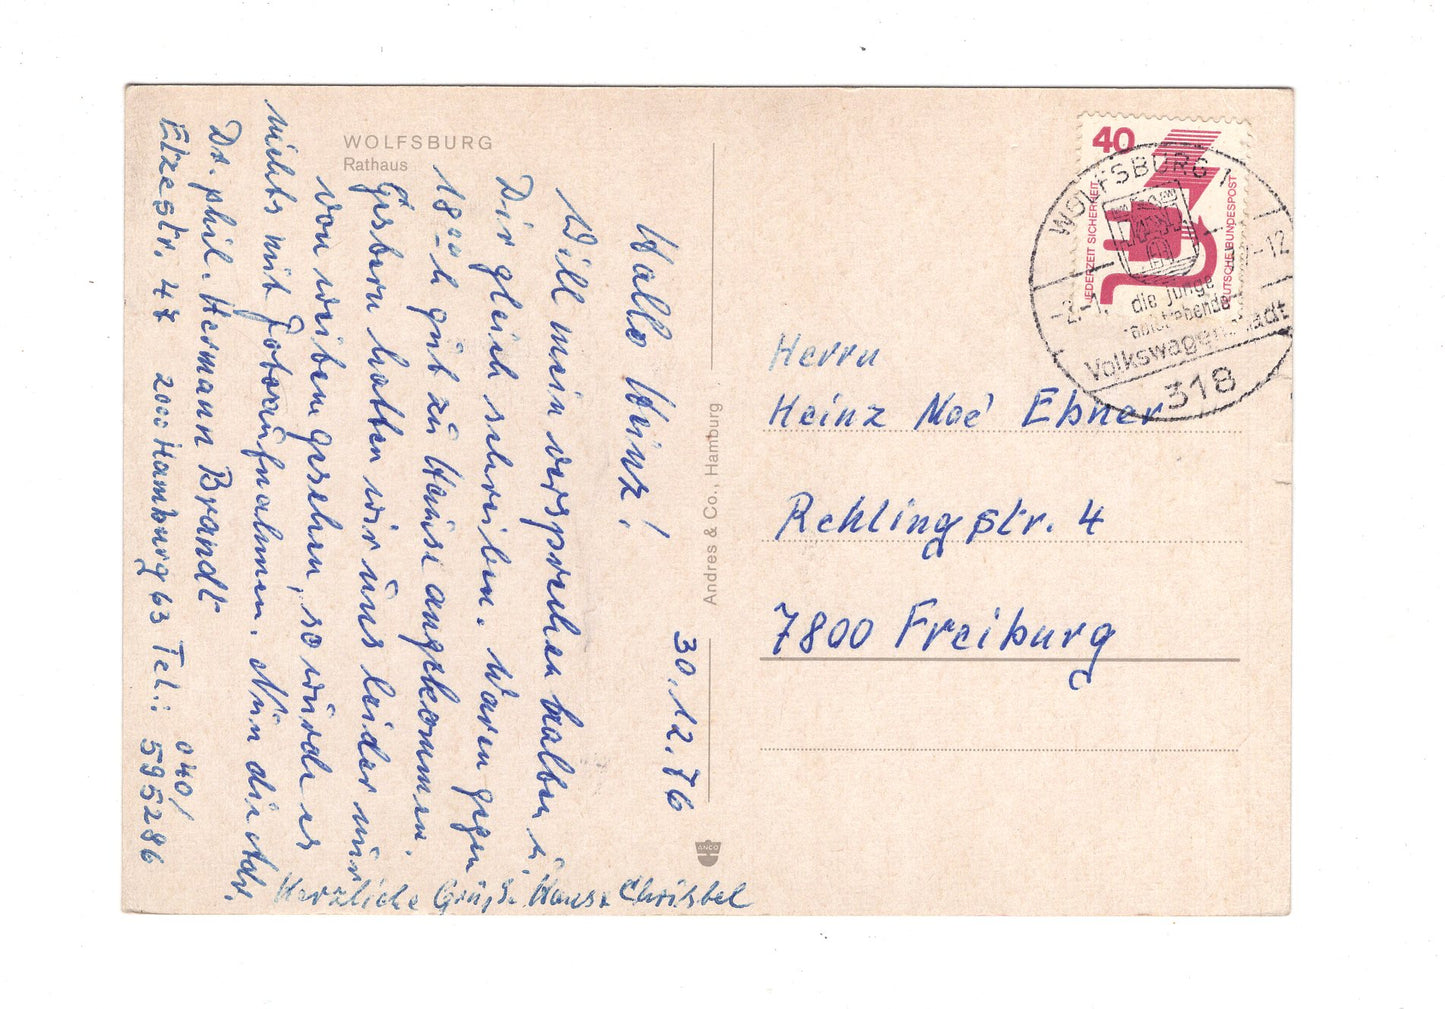 WOLFSBURG
Rathaus
30.12.76
Hallo Heinz!
Will mein versprochen halben u.
Dir gleich schreiben. Waren gegen
18ºº h gut zu Hause angekommen.
Gestern hatten wir uns leider nur
von weitem gesehen, so wurde es
nichts mit Fotoaufnahmen. Nun die Adr.
Dr. phil. Hermann Brandt
Etzestr. 47 2000 Hamburg 63 Tel.: 040/
595286
Herzliche Grüße Hans + Christel
Andres & Co., Hamburg
ANCO
40
JEDERZEIT SICHERHEIT
DEUTSCHE BUNDESPOST
WOLFSBURG 1
-2.-1. 7-12
die junge
aufstrebende
Volkswagenstadt
318
Herrn
Heinz Noé Ebner
Rehlingstr. 4
7800 Freiburg